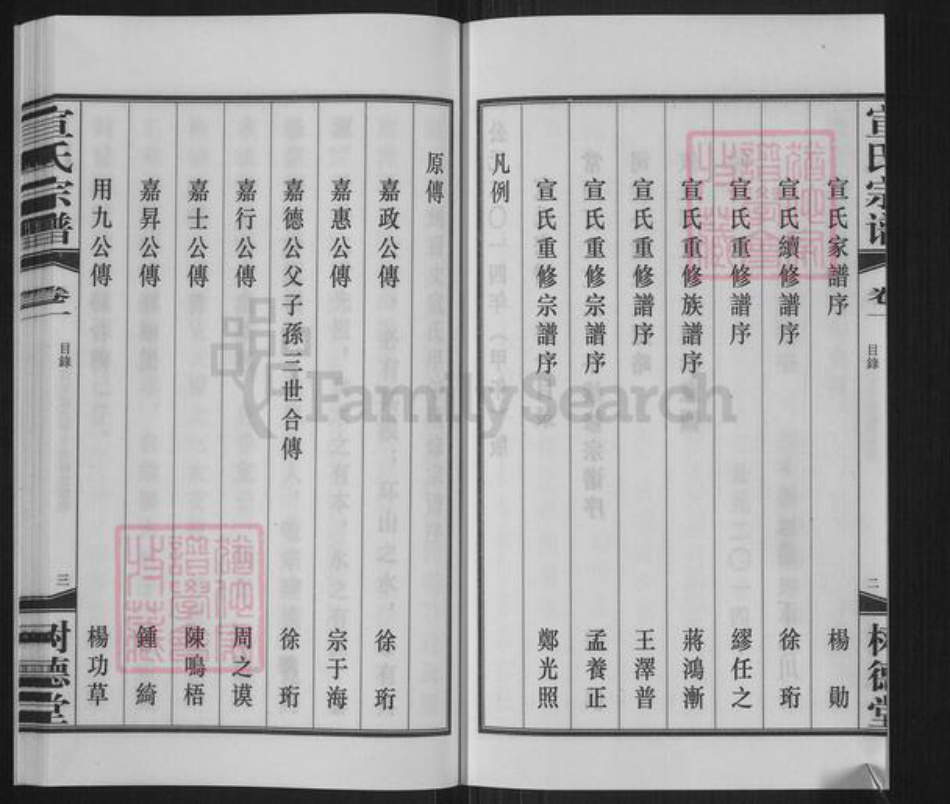 宣氏家譜序 楊勛
宣氏續修譜序 徐珩
宣氏重修譜序 繆任之
宣氏重修族譜序 蔣鴻漸
宣氏重修譜序 王澤普
宣氏重修宗譜序 孟養正
宣氏重修宗譜序 鄭光照
凡例
原傳
嘉政公傳 徐珩
嘉惠公傳 宗于海
嘉德公父子孫三世合傳 徐珩
嘉行公傳 周之谟
嘉士公傳 陳鳴梧
嘉昇公傳 鍾綺
用九公傳 楊功草
宣氏宗譜 卷一 目錄 三 树德堂
FamilySearch